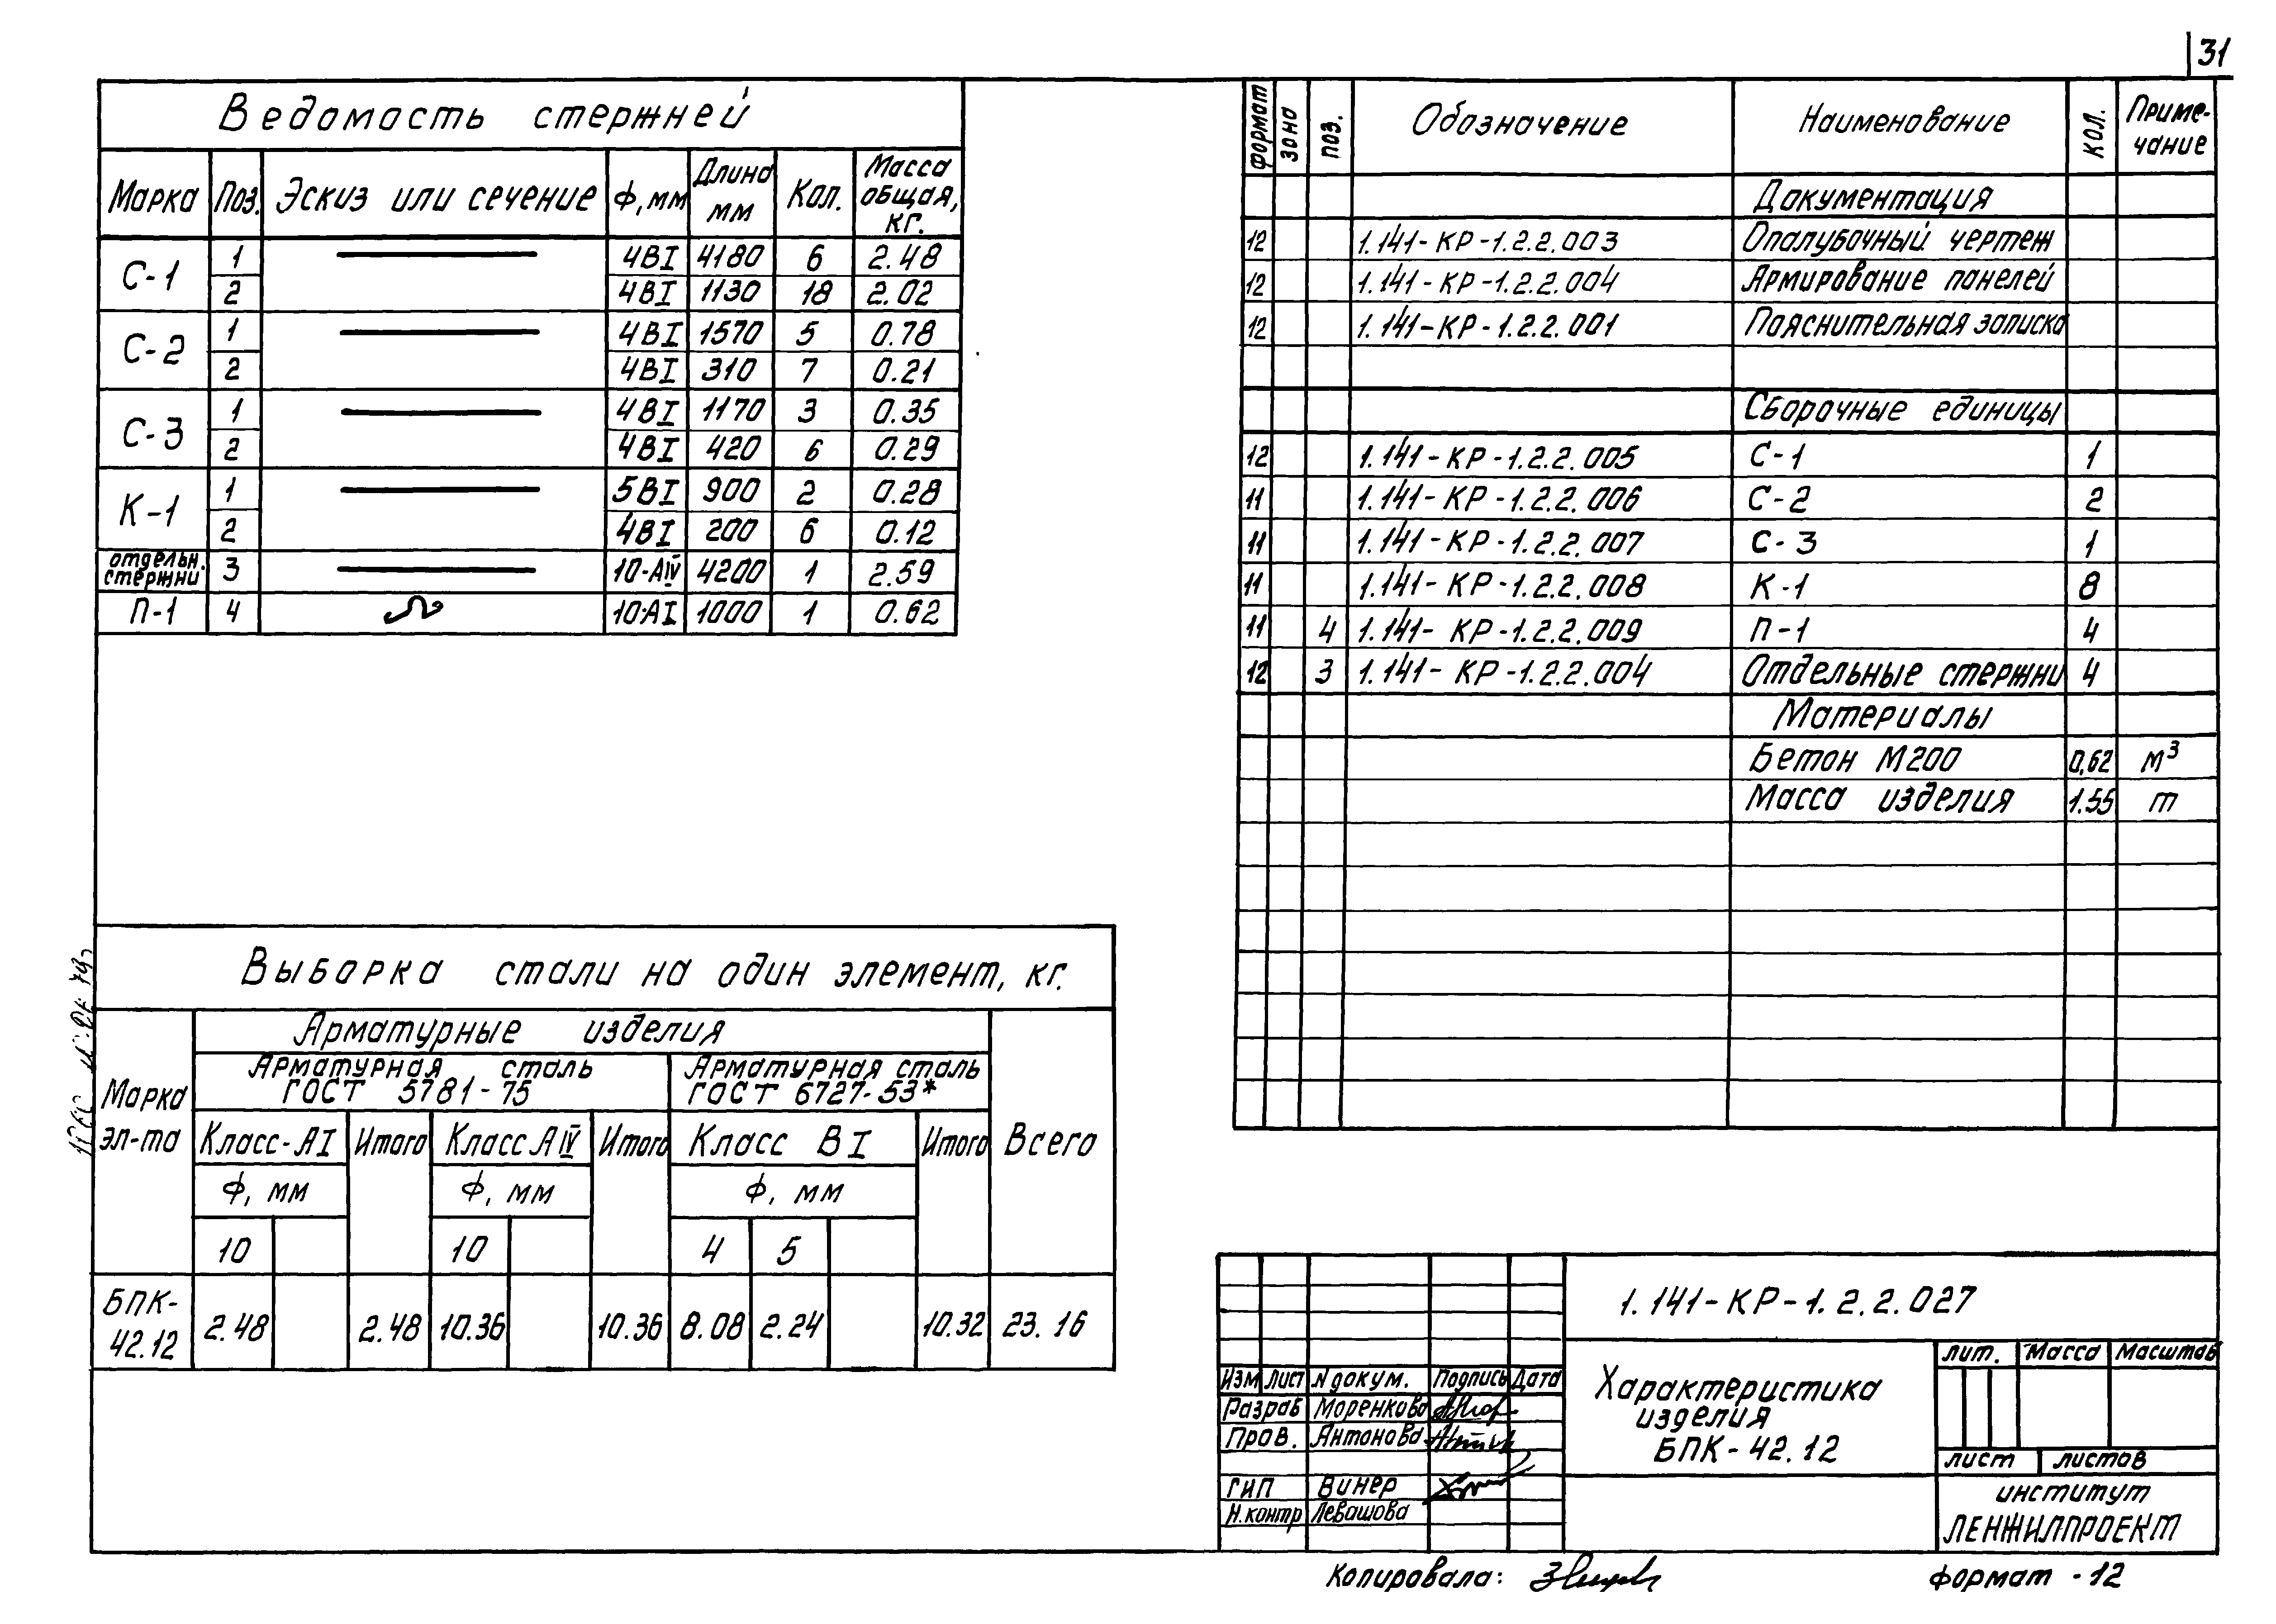 31
Ведомость стержней
Марка Поз. Эскиз или сечение Ф, мм Длина мм Кол. Масса общая, кг.
С-1 1 4ВI 4180 6 2.48
2 4ВI 1130 18 2.02
С-2 1 4ВI 1570 5 0.78
2 4ВI 310 7 0.21
С-3 1 4ВI 1170 3 0.35
2 4ВI 420 6 0.29
К-1 1 5ВI 900 2 0.28
2 4ВI 200 6 0.12
отдельн. стержни 3 10-АIV 4200 1 2.59
П-1 4 10-АI 1000 1 0.62
Формат Зона Поз. Обозначение Наименование Кол. Приме-чание
Документация
12 1.141-КР-1.2.2.003 Опалубочный чертеж
12 1.141-КР-1.2.2.004 Армирование панелей
12 1.141-КР-1.2.2.001 Пояснительная записка
Сборочные единицы
12 1.141-КР-1.2.2.005 С-1 1
11 1.141-КР-1.2.2.006 С-2 2
11 1.141-КР-1.2.2.007 С-3 1
11 1.141-КР-1.2.2.008 К-1 8
11 4 1.141-КР-1.2.2.009 П-1 4
12 3 1.141-КР-1.2.2.004 Отдельные стержни 4
Материалы
Бетон М200 0,62 м³
Масса изделия 1.55 т
Выборка стали на один элемент, кг.
Марка эл-та
Арматурные изделия
Арматурная сталь ГОСТ 5781-75
Арматурная сталь ГОСТ 6727-53*
Класс-АI Итого Класс АIV Итого Класс ВI Итого Всего
Ф, мм Ф, мм Ф, мм
10 10 4 5
БПК-42.12 2.48 2.48 10.36 10.36 8.08 2.24 10.32 23.16
1.141-КР-1.2.2.027
Изм Лист N докум. Подпись Дата
Разраб Моренкова
Пров. Антонова
ГИП Винер
Н.контр Левашова
Характеристика
изделия
БПК-42.12
Лит. Масса Масштаб
Лист Листов
институт
ЛЕНЖИЛПРОЕКТ
Копировала:
Формат -12